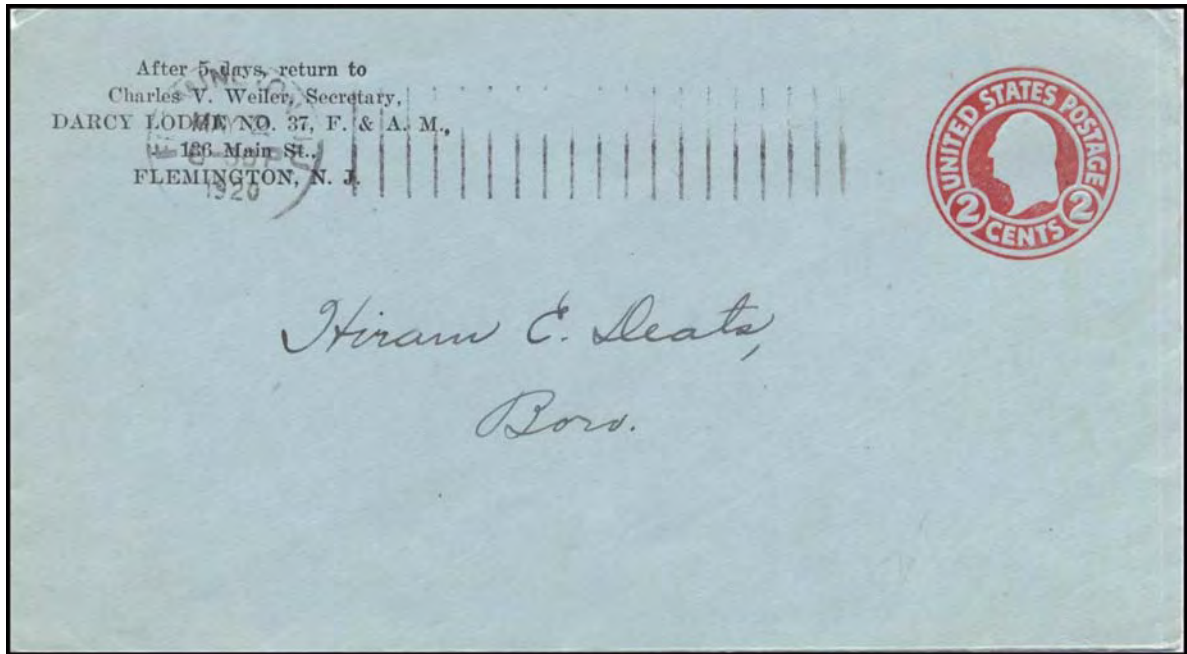 After 5 days, return to
Charles V. Weiler, Secretary,
DARCY LODGE NO. 37, F. & A. M.,
136 Main St.,
FLEMINGTON, N. J.
MAY
1920
UNITED STATES POSTAGE
2 CENTS 2
Hiram E. Deats,
Boro.